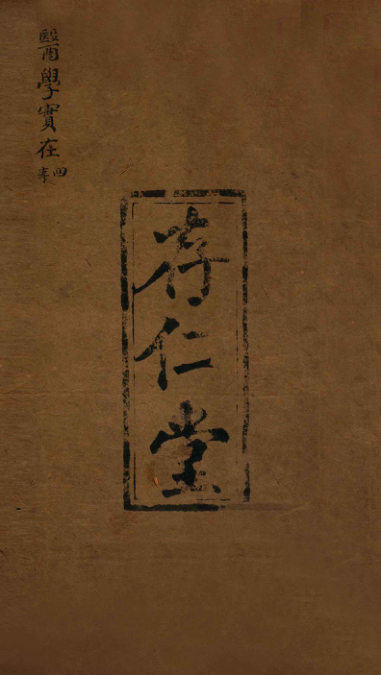 存仁堂
醫學實在 四